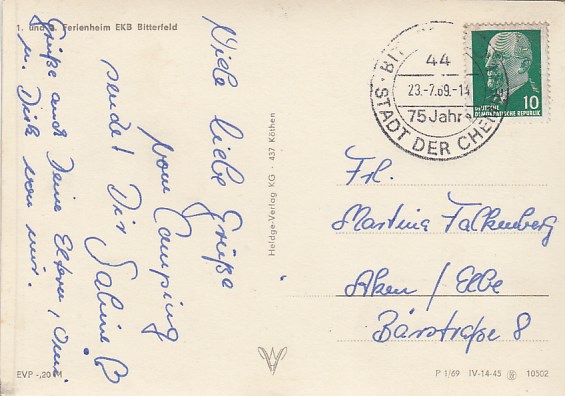 1. und 2. Ferienheim EKB Bitterfeld
Viele liebe Grüße
vom Camping
sendet Dir Sabine B
Grüße auch Deine Eltern, Omi
u. Dirk von mir.
EVP -,20 M
Heldge-Verlag KG · 437 Köthen
44
23.-7.69.-14
75 Jahr
STADT DER CHE
DEUTSCHE
DEMOKRATISCHE REPUBLIK
10
Frl.
Martina Falkenberg
Aken / Elbe
Bärstraße 8
P 1/69 IV-14-45 10502